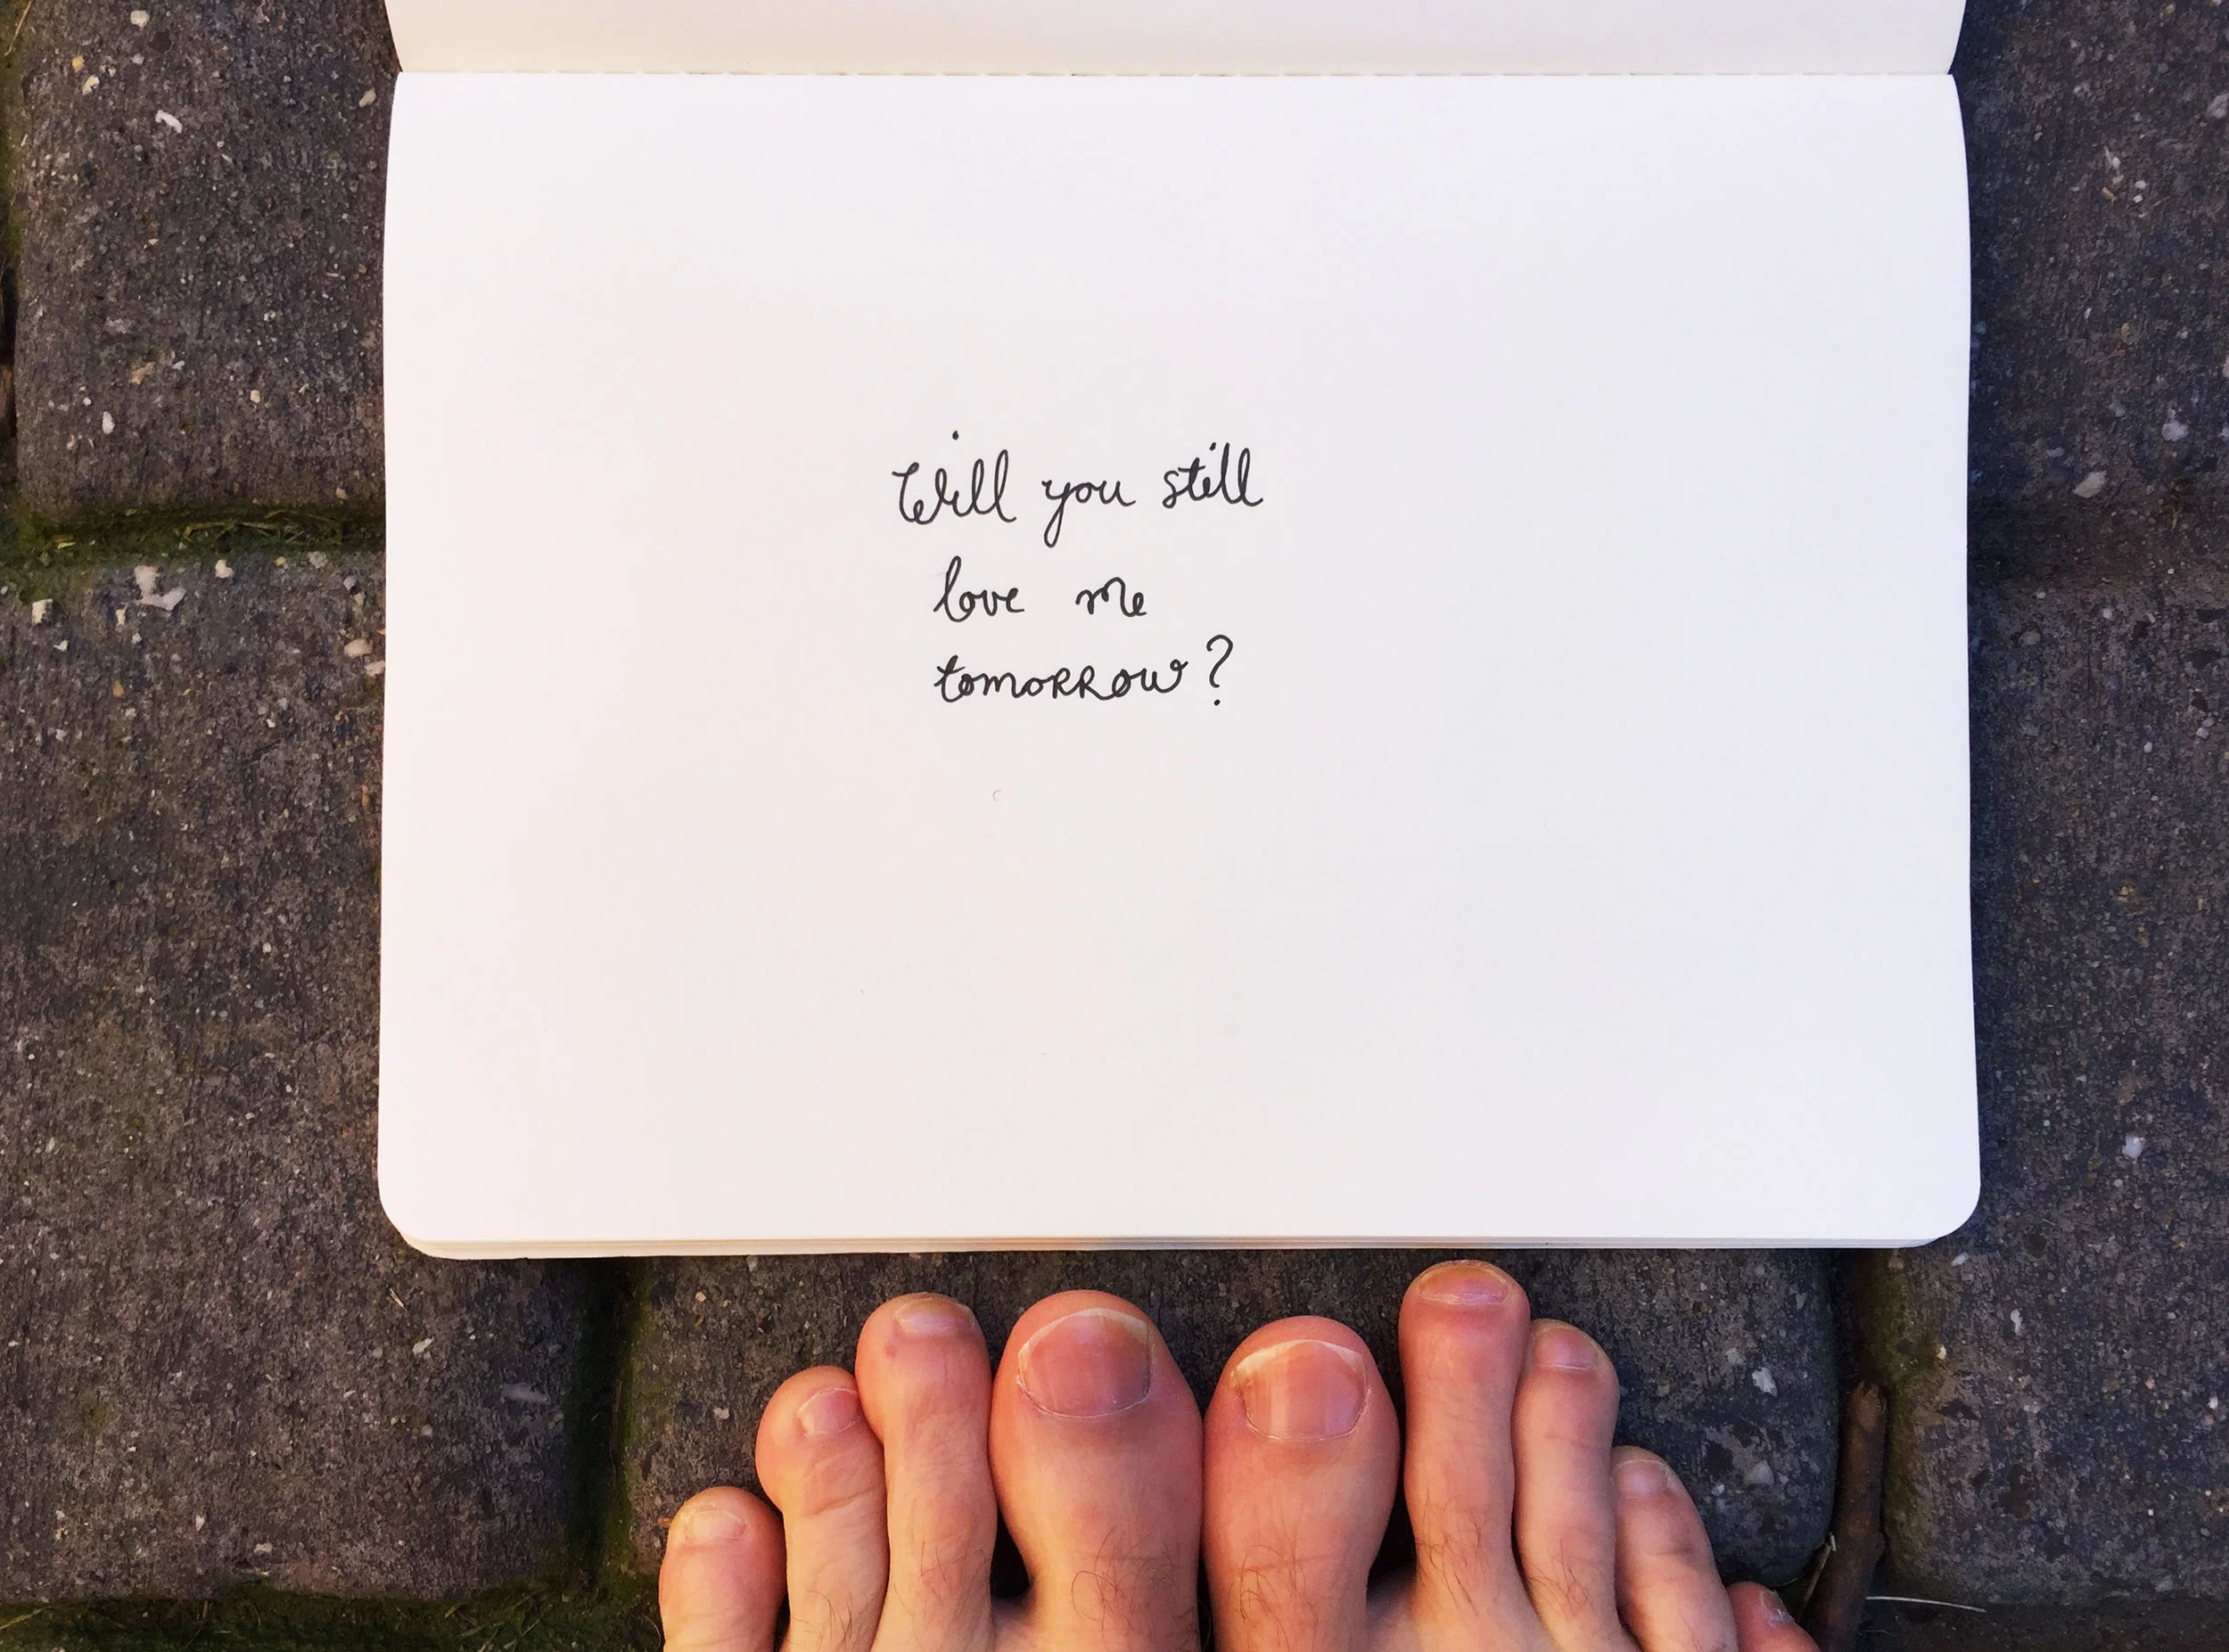 Will you still
love me
tomorrow?